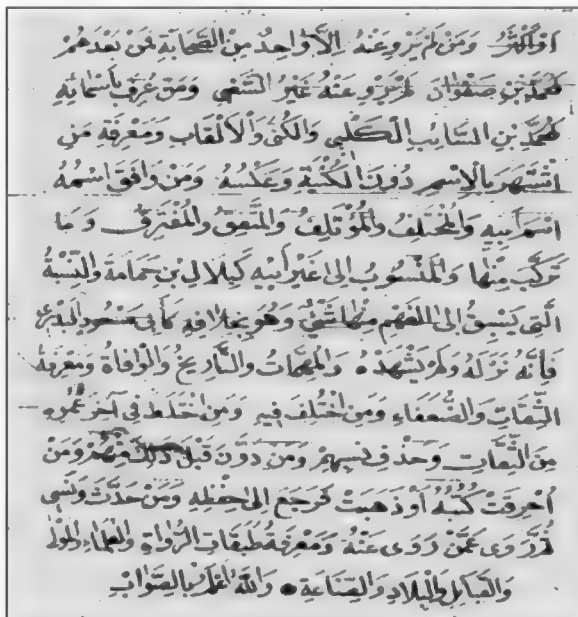 أو أكثر ومن لم يرو عنه إلا واحد من الصحابة فمن بعدهم
كمحمد بن صفوان لم يرو عنه غير الشعبي ومن عرف بأسمائه
كمحمد بن السائب الكلبي والكنى والألقاب ومعرفة من
اشتهر بالاسم دون الكنية وعكسه ومن وافق اسمه
اسم أبيه والمختلف والمؤتلف والمتفق والمفترق وما
تركب منها والمنسوب إلى غير أبيه كبلال بن حمامة والنسبة
التي يسبق إلى الفهم منها شيء وهو بخلافه كأبي مسعود البدري
فإنه نزله ولم يشهده والمبهمات والتأريخ والوفاة ومعرفة
الثقات والضعفاء ومن اختلف فيه ومن اختلط في آخر عمره
من الثقات وحذف نسبهم ومن دون قبل ذلك منهم ومن
احرقت كتبه أو ذهبت فرجع إلى حفظه ومن حدث ونسي
ثم روى عمن روى عنه ومعرفة طبقات الرواة والعلماء
والقبائل والبلاد والصناعة والله أعلم بالصواب